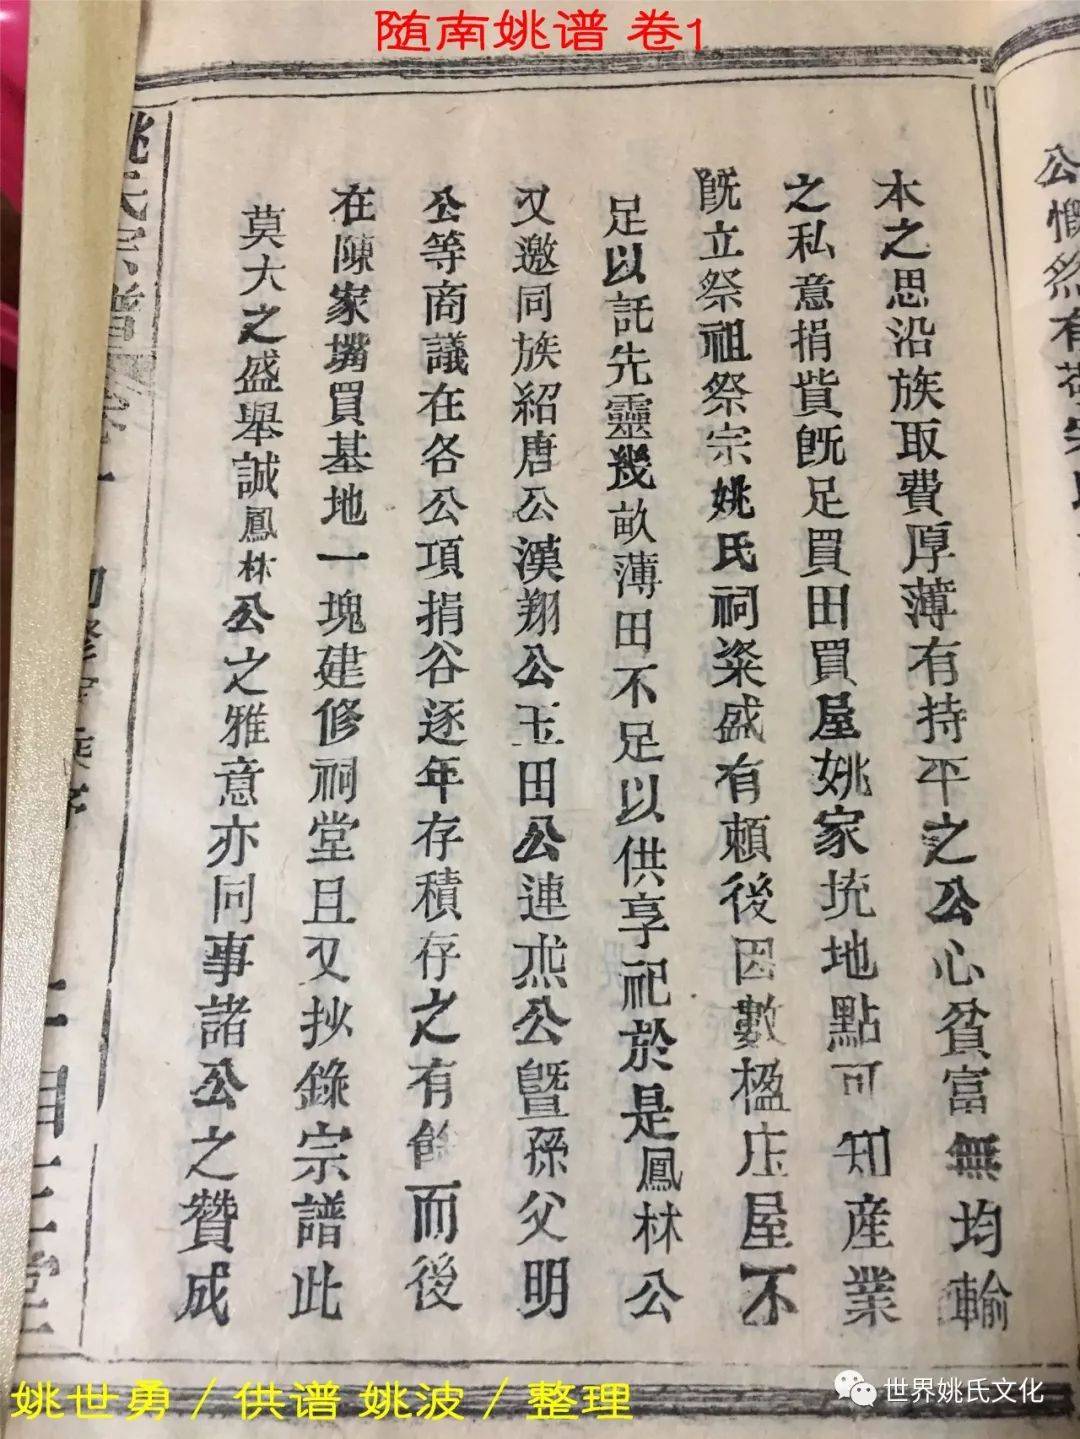 随南姚谱 卷1
公慨然有
本之思沿族取費厚薄有持平之公心貧富無均輸
之私意捐貲既足買田買屋姚家㘬地點可知產業
既立祭祖祭宗姚氏祠粢盛有賴後因數楹庄屋不
足以託先靈幾畝薄田不足以供享祀於是鳳林公
又邀同族紹唐公漢翔公玉田公連燕公暨孫父明
公等商議在各公項捐谷逐年存積存之有餘而後
在陳家塆買基地一塊建修祠堂且又抄錄宗譜此
莫大之盛舉誠鳳林公之雅意亦同事諸公之贊成
姚氏宗譜
姚世勇／供谱 姚波／整理
世界姚氏文化